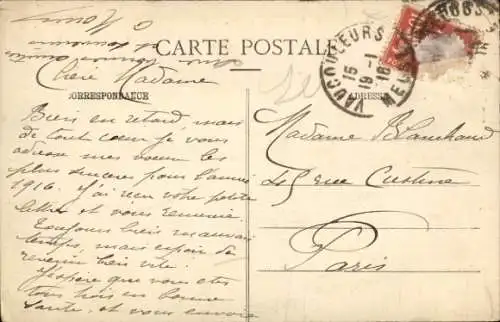 CARTE POSTALE
CORRESPONDANCE
ADRESSE
VAUCOULEURS
15-1
19 16
MEUSE
Chère Madame
Bien en retard, mais
de tout cœur je vous
adresse mes vœux les
plus sincères pour l'année
1916. J'ai reçu votre petite
lettre et vous remercie.
Toujours bien mauvais
temps, mais espoir de
revenir bien vite.
J'espère que vous êtes
tous trois en bonne
santé, et vous envoie
Madame Blanchard
45 rue Custine
Paris